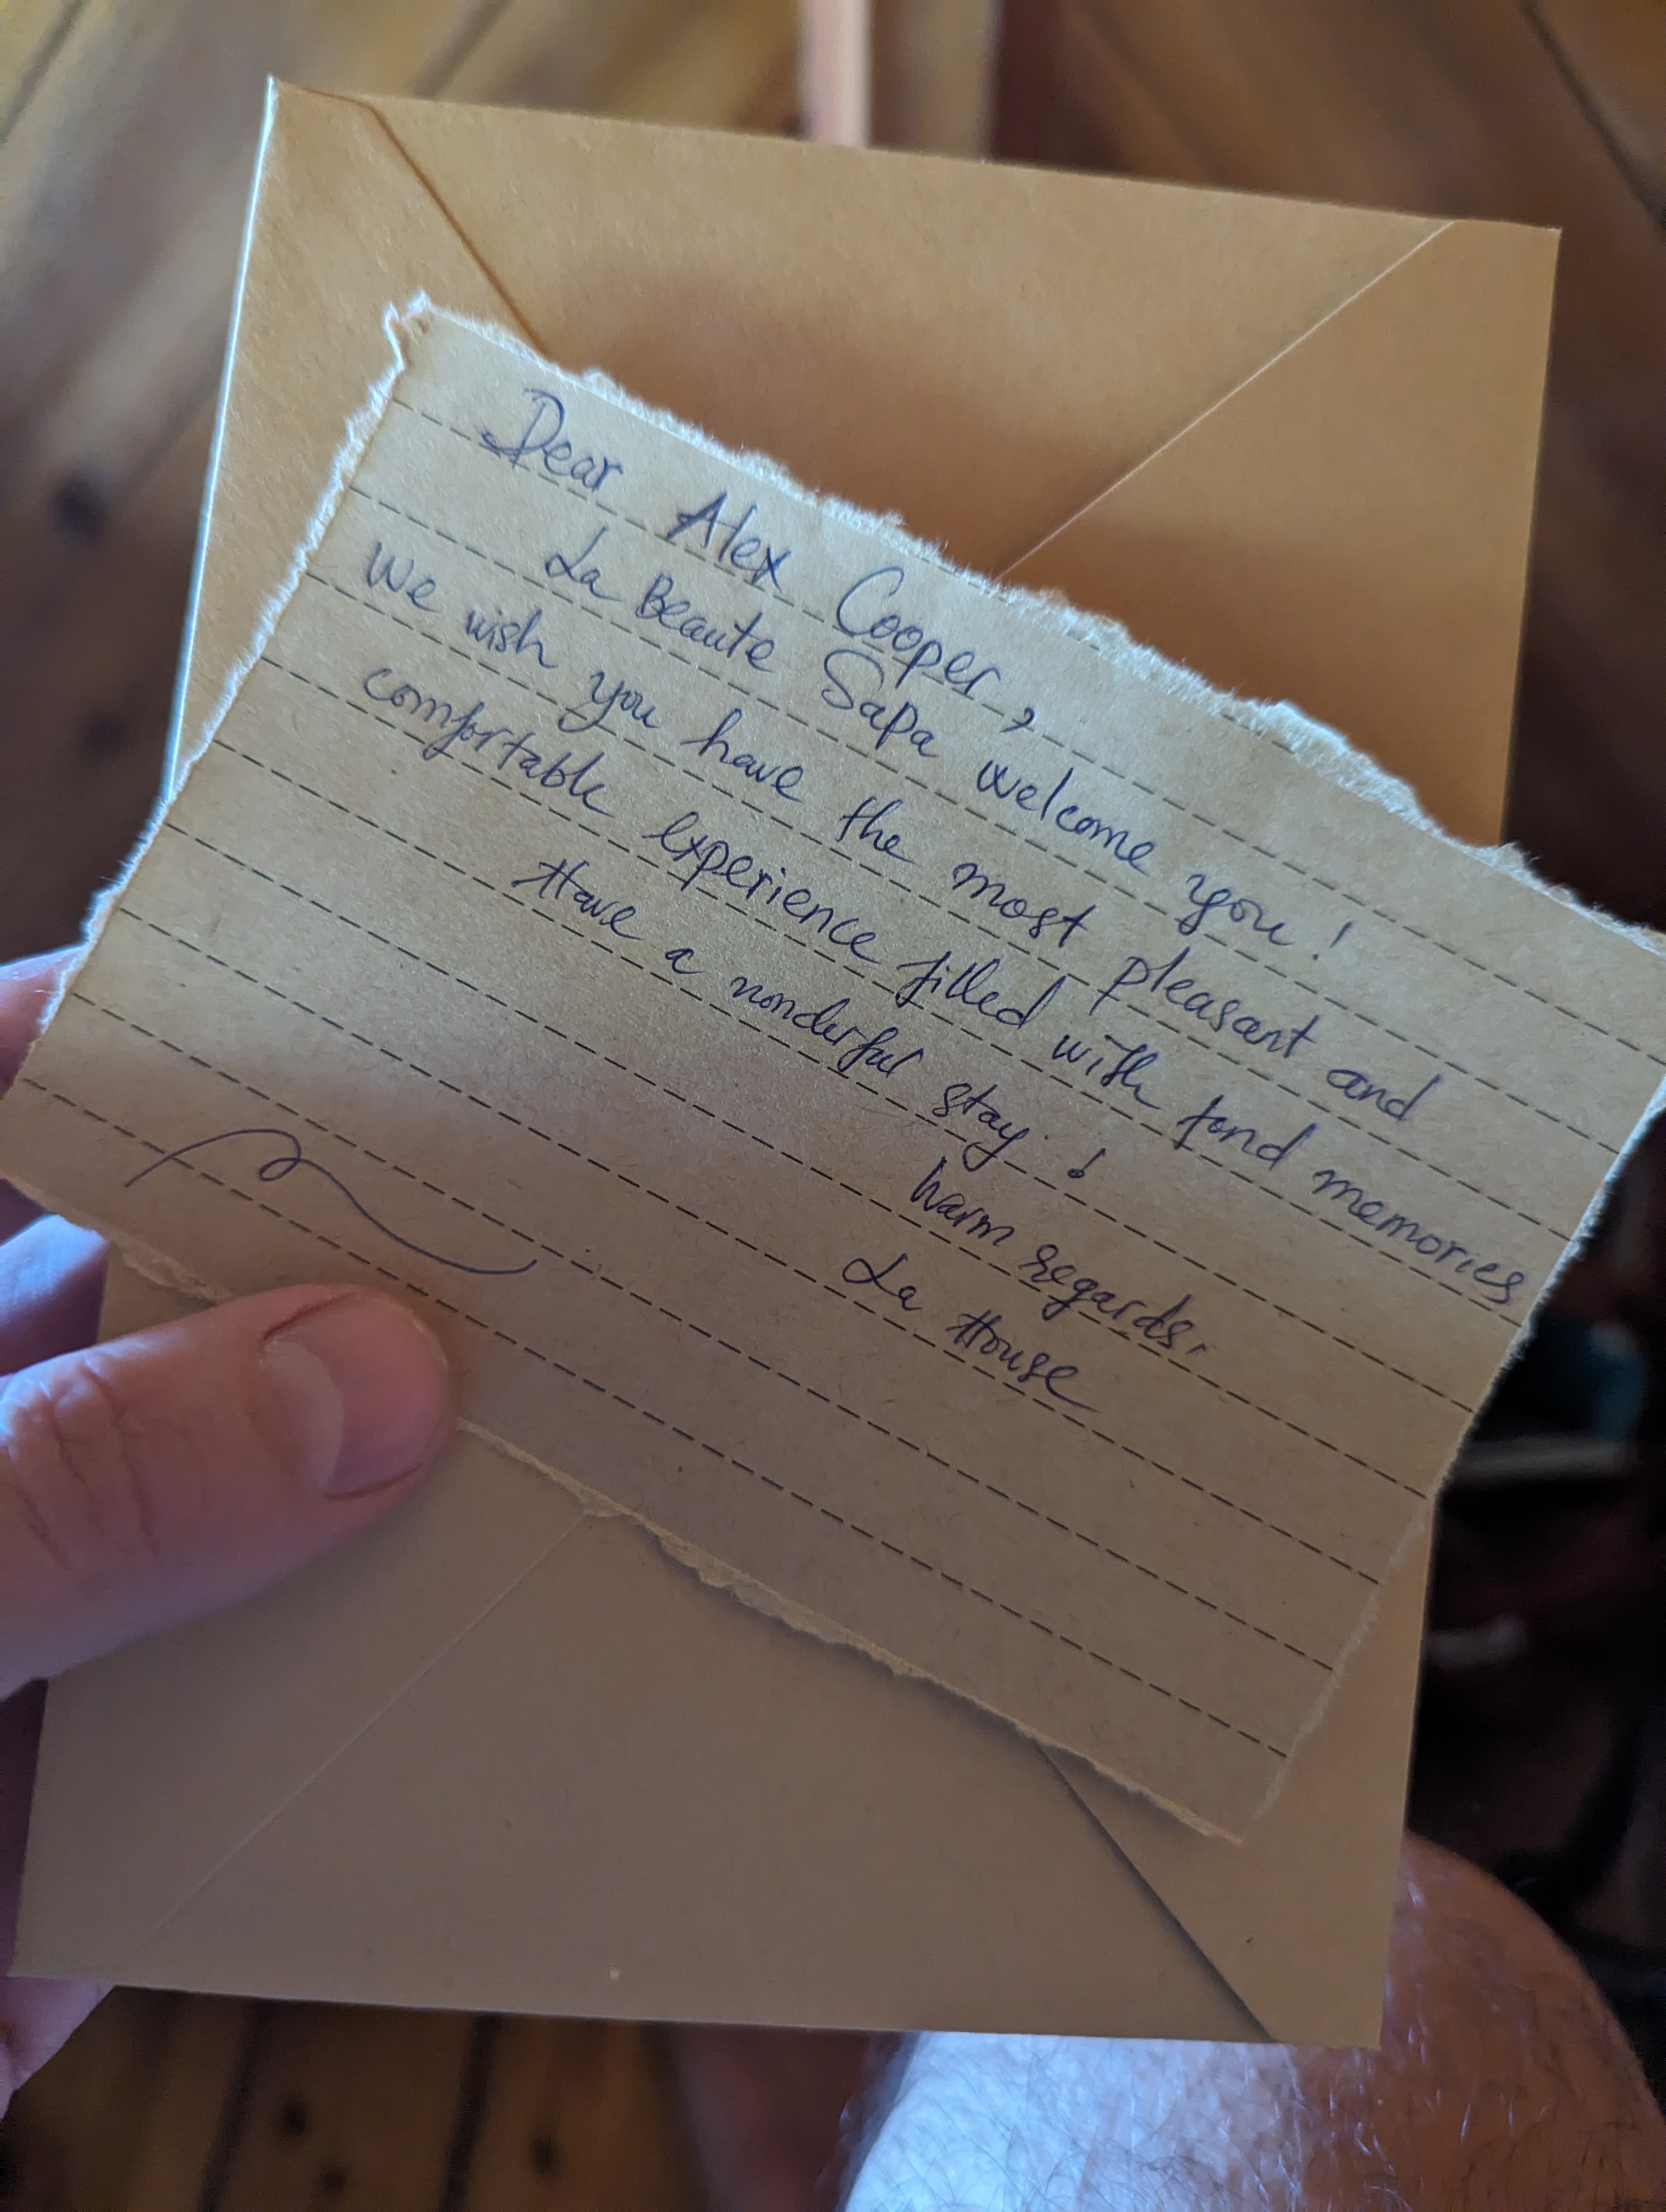 Dear Alex Cooper,
La Beaute Sapa welcome you!
We wish you have the most pleasant and
comfortable experience filled with fond memories
Have a wonderful stay!
Warm regards,
La House